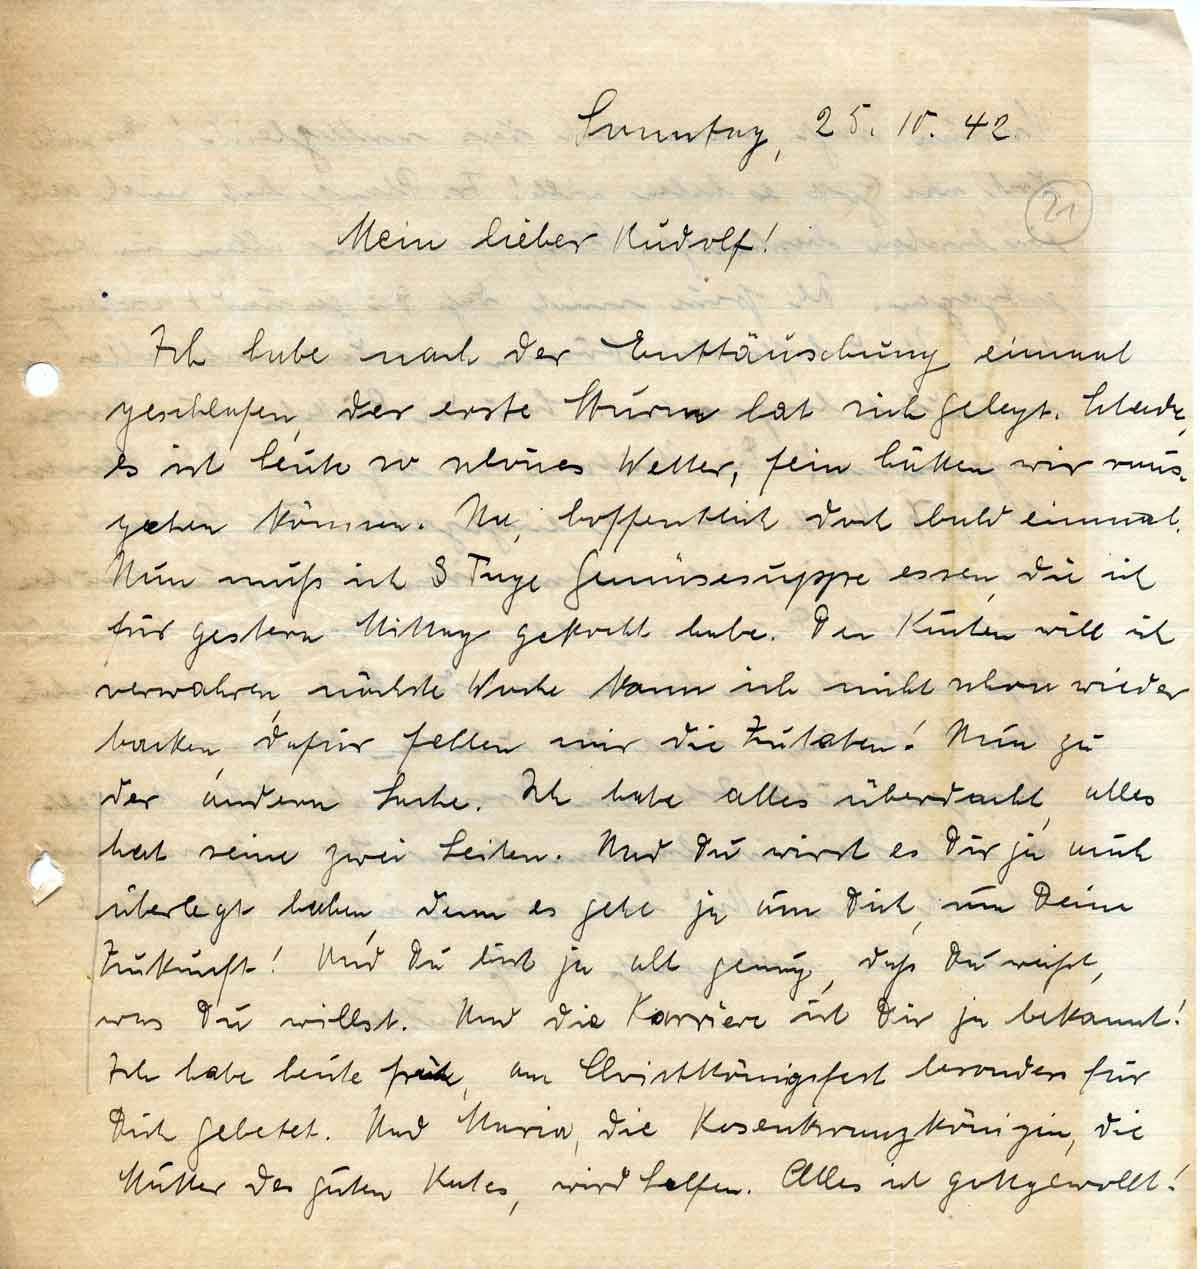 Sonntag, 25. 10. 42.
21
Mein lieber Rudolf!
Ich habe nach der Enttäuschung einmal
geschlafen, der erste Sturm hat sich gelegt. Schade,
es ist heute so schönes Wetter, fein hätten wir raus-
gehen können. Na, hoffentlich doch bald einmal.
Nun muß ich 3 Tage Gemüsesuppe essen, die ich
für gestern Mittag gekocht habe. Den Kuchen will ich
verwahren, nächste Woche kann ich nicht schon wieder
backen, dafür fehlen mir die Zutaten! Nun zu
der andern Sache. Ich habe alles überdacht, alles
hat seine zwei Seiten. Und Du wirst es Dir ja auch
überlegt haben, denn es geht ja um Dich, um Deine
Zukunft! Und Du bist ja alt genug, daß Du weißt,
was Du willst. Und die Karriere ist Dir ja bekannt!
Ich habe heute früh, am Christkönigsfest besonders für
Dich gebetet. Und Maria, die Rosenkranzkönigin, die
Mutter des guten Rates, wird helfen. Alles ist gottgewollt!